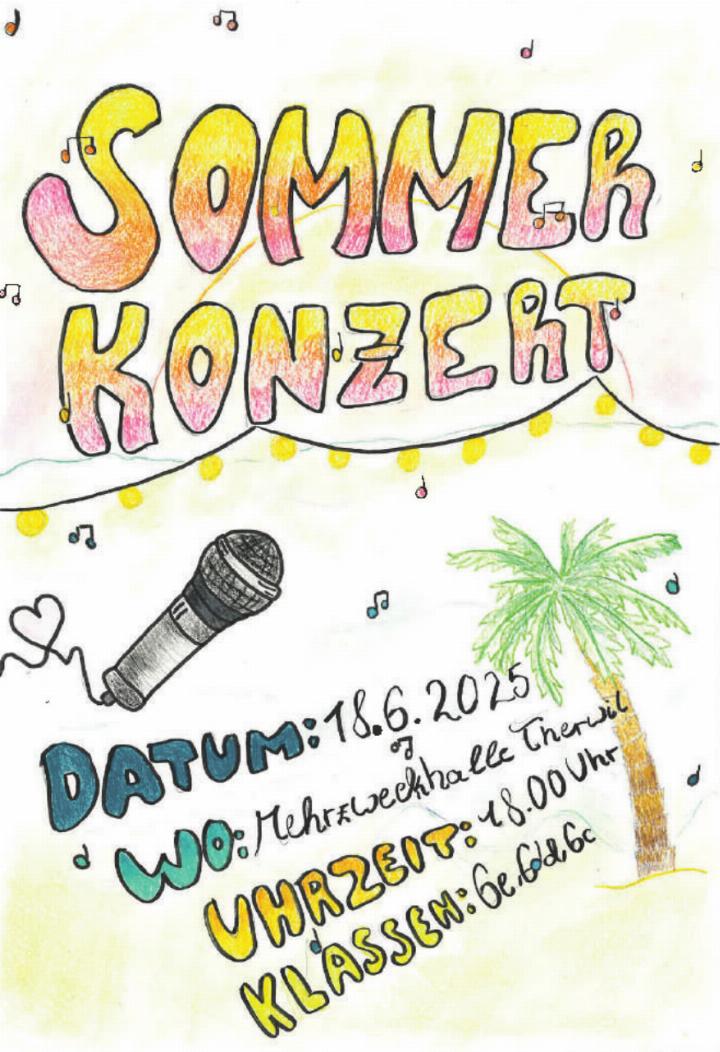 SOMMER
KONZERT
DATUM: 18.6.2025
WO: Mehrzweckhalle Therwil
UHRZEIT: 18.00 Uhr
KLASSEN: 6e, 6d, 6c